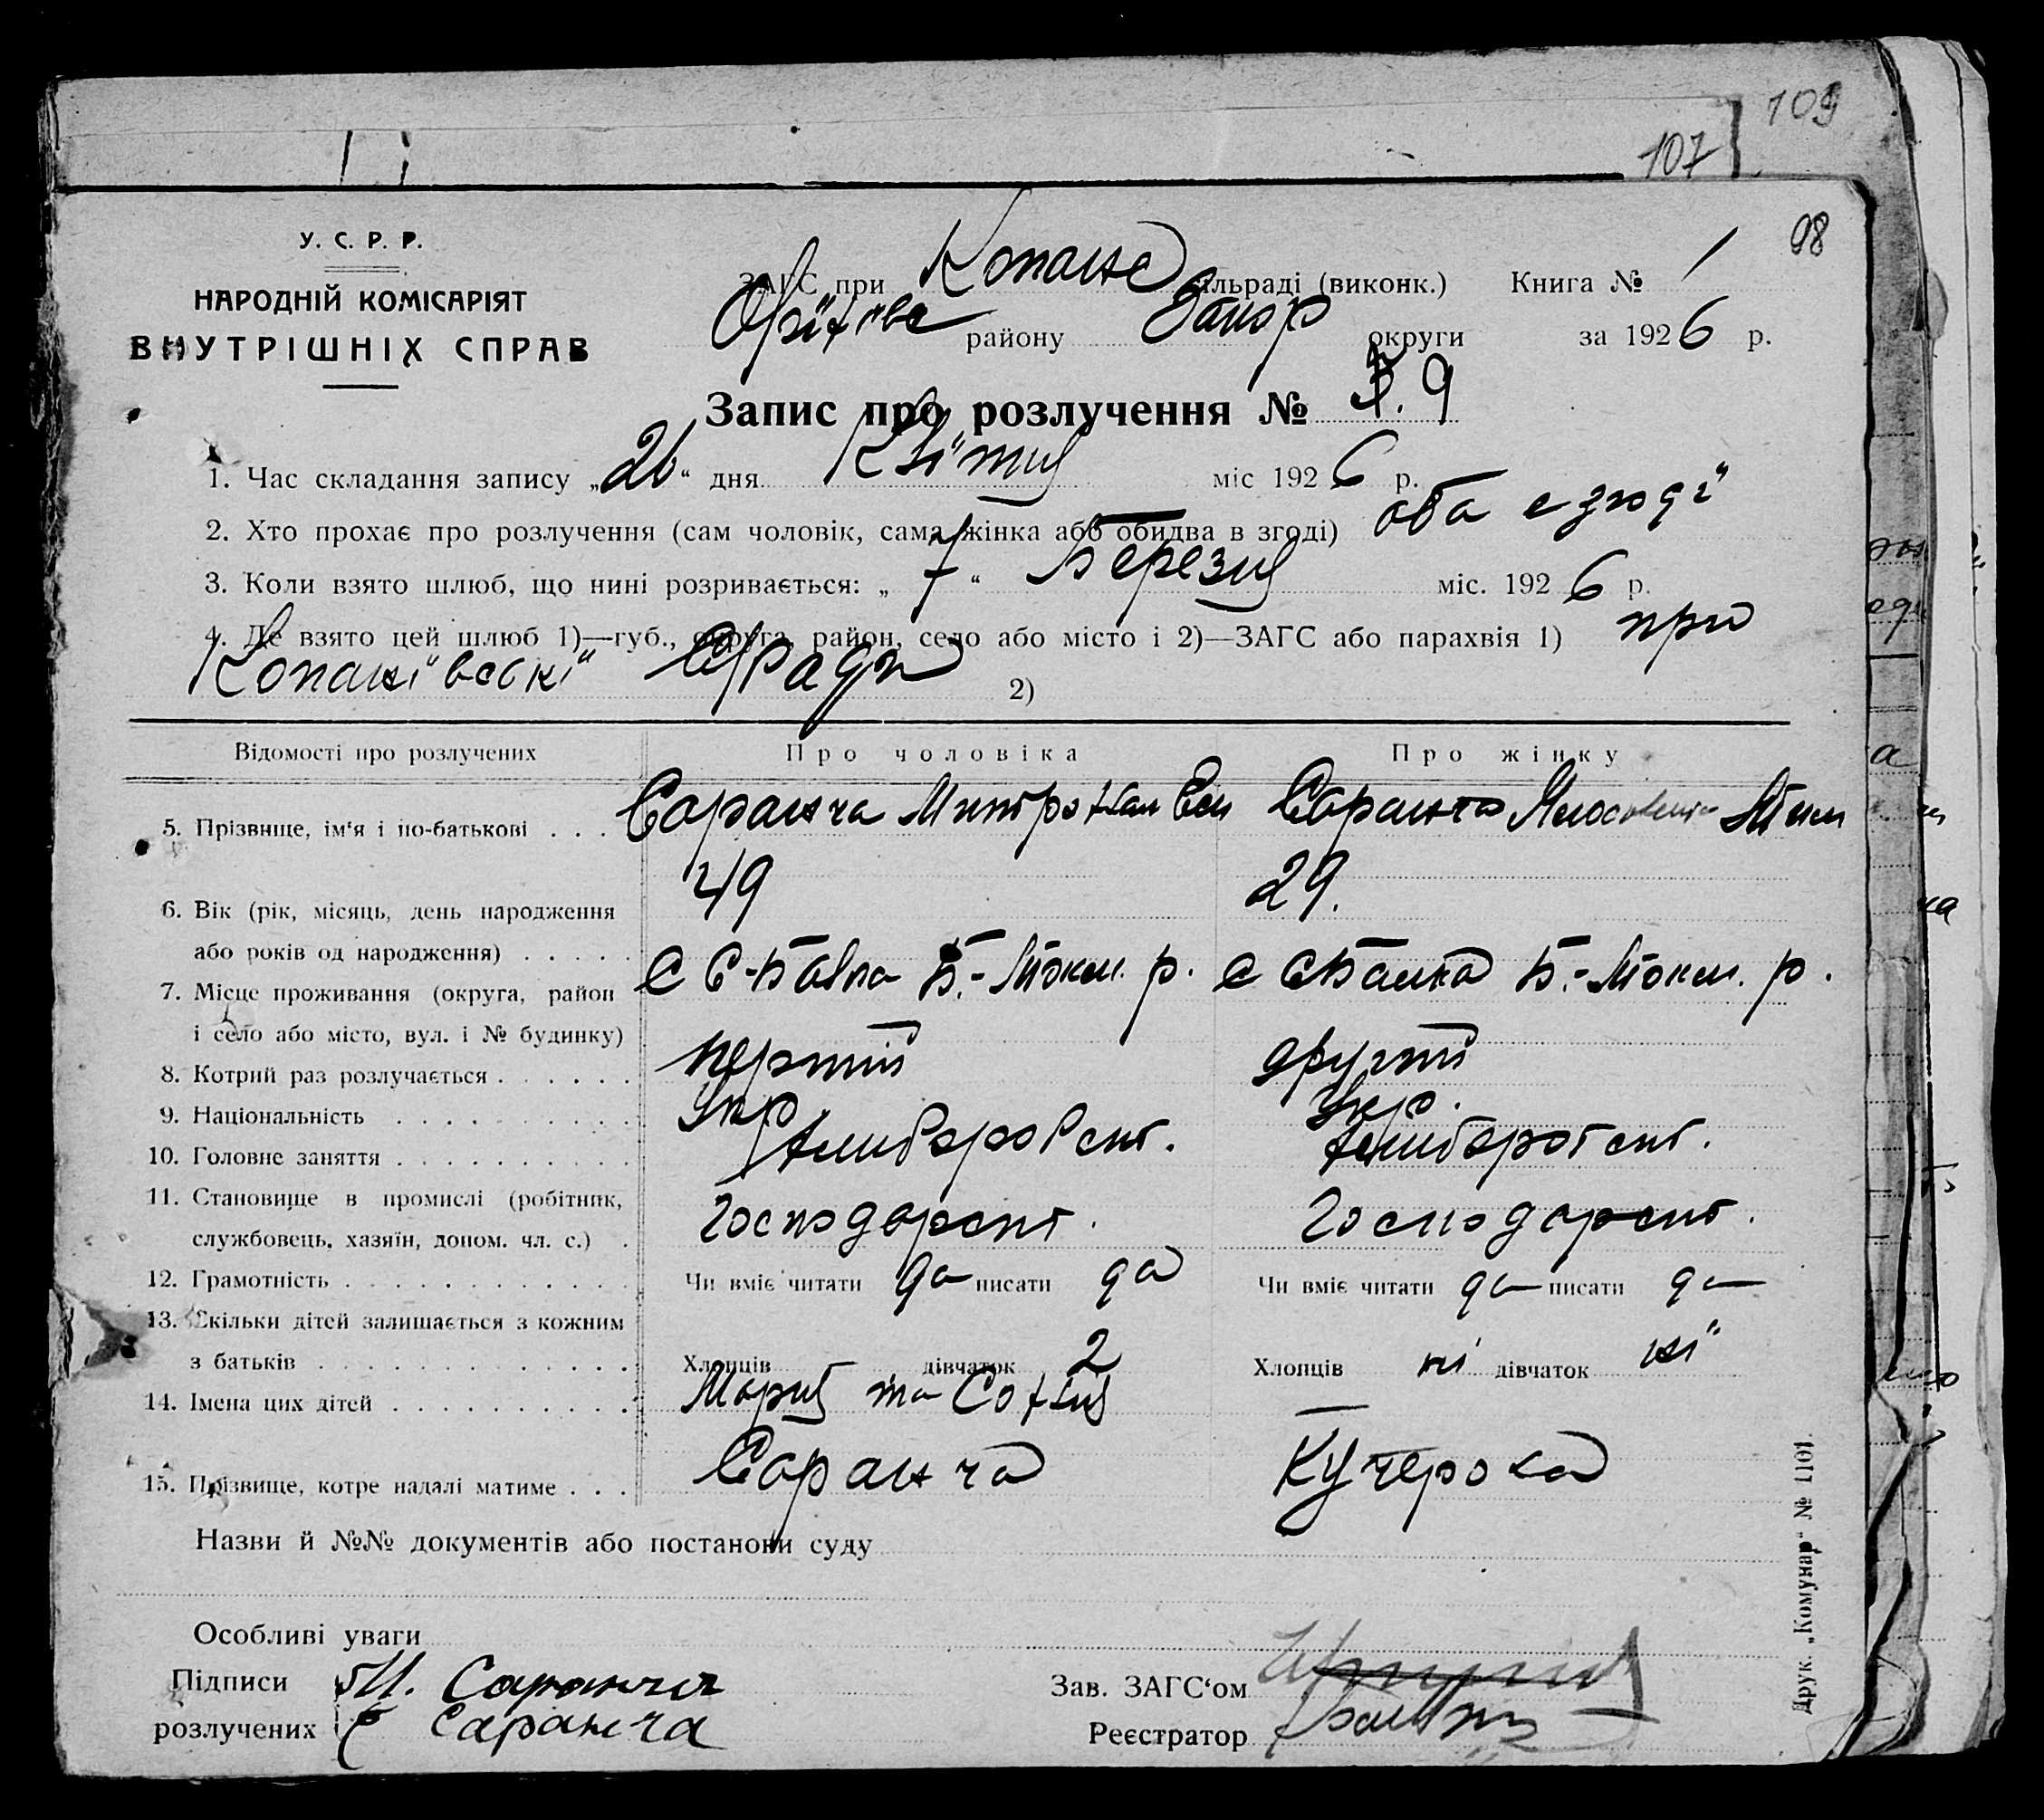 109
107
98
У. С. Р. Р.
НАРОДНІЙ КОМІСАРІЯТ
ВНУТРІШНІХ СПРАВ
ЗАГС при Копане сільраді (виконк.) Книга № 1
Оріхове району Запор округи за 1926 р.
Запис про розлучення № 9
1. Час складання запису „26“ дня Квітня міс 1926 р.
2. Хто прохає про розлучення (сам чоловік, сама жінка або обидва в згоді) оба в згоді
3. Коли взято шлюб, що нині розривається: „7“ Березня міс. 1926 р.
4. Де взято цей шлюб 1)—губ., округа, район, село або місто і 2)—ЗАГС або парахвія 1) при
Копанівські С/раді 2)
Відомості про розлучених Про чоловіка Про жінку
5. Прізвище, ім‘я і по-батькові . . . Саранча Митрофан Саранча
6. Вік (рік, місяць, день народження 49 29.
або років од народження) . . . . .
7. Місце проживання (округа, район с С-Балка Б.-Токм. р. с С Балка Б.-Токм. р.
і село або місто, вул. і № будинку)
8. Котрий раз розлучається . . . . . . перший другий
9. Національність . . . . . . . . . . Укр. Укр.
10. Головне заняття . . . . . . . . . . Хлиборобст. Хлиборобст.
11. Становище в промислі (робітник, господарст. господарст.
службовець, хазяїн, допом. чл. с.) .
12. Грамотність . . . . . . . . . . . . Чи вміє читати да писати да Чи вміє читати да писати да
13. Скільки дітей залишається з кожним
з батьків . . . . . . . . . . . . . Хлопців дівчаток 2 Хлопців ні дівчаток ні
14. Імена цих дітей . . . . . . . . . . Мария та София —
15. Прізвище, котре надалі матиме . . . Саранча Кучерова
Назви й №№ документів або постанови суду
Особливі уваги
Підписи М. Саранча Зав. ЗАГС‘ом
розлучених Саранча Реєстратор
Друк. „Комунар“ № 1101.